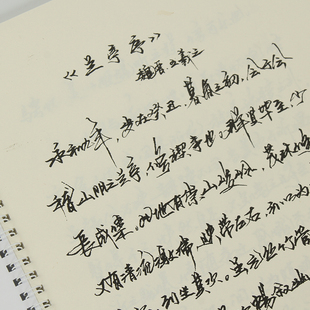 《兰亭序》
魏晋 王羲之
永和九年，岁在癸丑，暮春之初，会于会
稽山阴之兰亭，修禊事也。群贤毕至，少
长咸集。此地有崇山峻岭，茂林修
又有清流激湍，映带左右，引以为
列坐其次。虽无丝竹管
畅叙幽